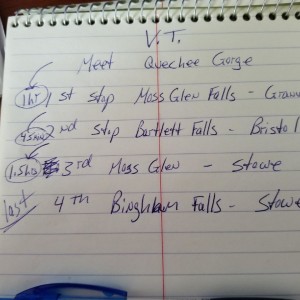 V.T.
Meet Quechee Gorge
1hr 1st stop Moss Glen Falls -
45min 2nd stop Bartlett Falls - Bristol
1.5hr 3rd Moss Glen - Stowe
last 4th Bingham Falls - Stowe